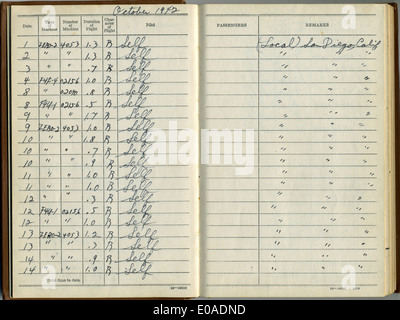 October 1942
Date Type of Machine Number of Machine Duration of Flight Character of Flight Pilot PASSENGERS REMARKS
1 4053 1.3 R Self (Local) San Diego, Calif
2 " " 1.3 R Self " "
3 " " .7 R Self " "
4 F4F-4 02156 1.0 R Self " "
8 " .8 R Self " "
8 F4F-4 02156 .5 R Self " "
9 " " 1.7 R Self " "
9 4053 1.0 R Self " "
10 " " 1.8 R Self " "
10 " " .7 R Self " "
10 " " .9 R Self " "
11 " " 1.0 R Self " "
11 " " 1.0 R Self " "
12 " " .3 R Self " "
12 F4F-4 02156 .5 R Self " "
12 " " 1.0 R Self " "
13 4053 1.2 R Self " "
13 " " .3 R Self " "
14 " " .9 R Self " "
14 " " 1.0 R Self " "
Total time to date,
alamy
E0ADND